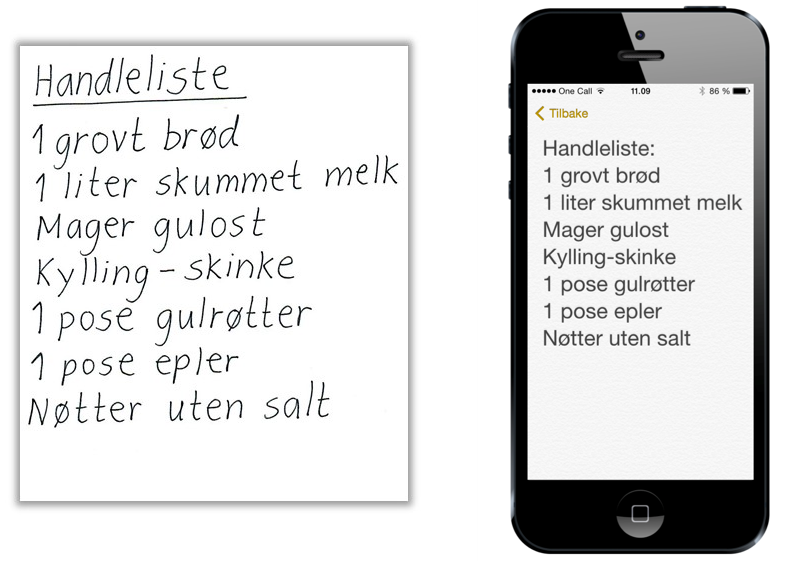 Handleliste
1 grovt brød
1 liter skummet melk
Mager gulost
Kylling-skinke
1 pose gulrøtter
1 pose epler
Nøtter uten salt
One Call 11.09 86 %
Tilbake
Handleliste:
1 grovt brød
1 liter skummet melk
Mager gulost
Kylling-skinke
1 pose gulrøtter
1 pose epler
Nøtter uten salt